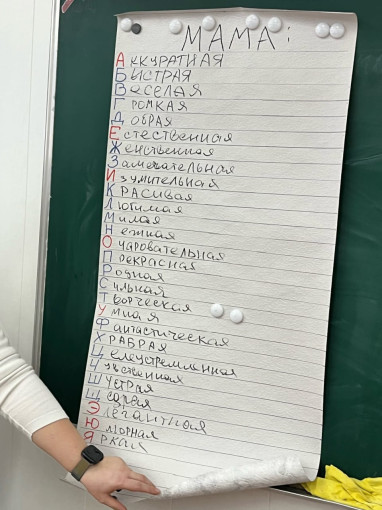 МАМА:
АККУРАТНАЯ
БЫСТРАЯ
ВЕСЕЛАЯ
ГРОМКАЯ
ДОБРАЯ
ЕСТЕСТВЕННАЯ
ЖЕНСТВЕННАЯ
ЗАМЕЧАТЕЛЬНАЯ
ИЗУМИТЕЛЬНАЯ
КРАСИВАЯ
ЛЮБИМАЯ
МИЛАЯ
НЕЖНАЯ
ОЧАРОВАТЕЛЬНАЯ
ПРЕКРАСНАЯ
РОДНАЯ
СИЛЬНАЯ
ТВОРЧЕСКАЯ
УМНАЯ
ФАНТАСТИЧЕСКАЯ
ХРАБРАЯ
ЦЕЛЕУСТРЕМЛЕННАЯ
ЧУВСТВЕННАЯ
ШУСТРАЯ
ЩЕДРАЯ
ЭЛЕГАНТНАЯ
ЮМОРНАЯ
ЯРКАЯ